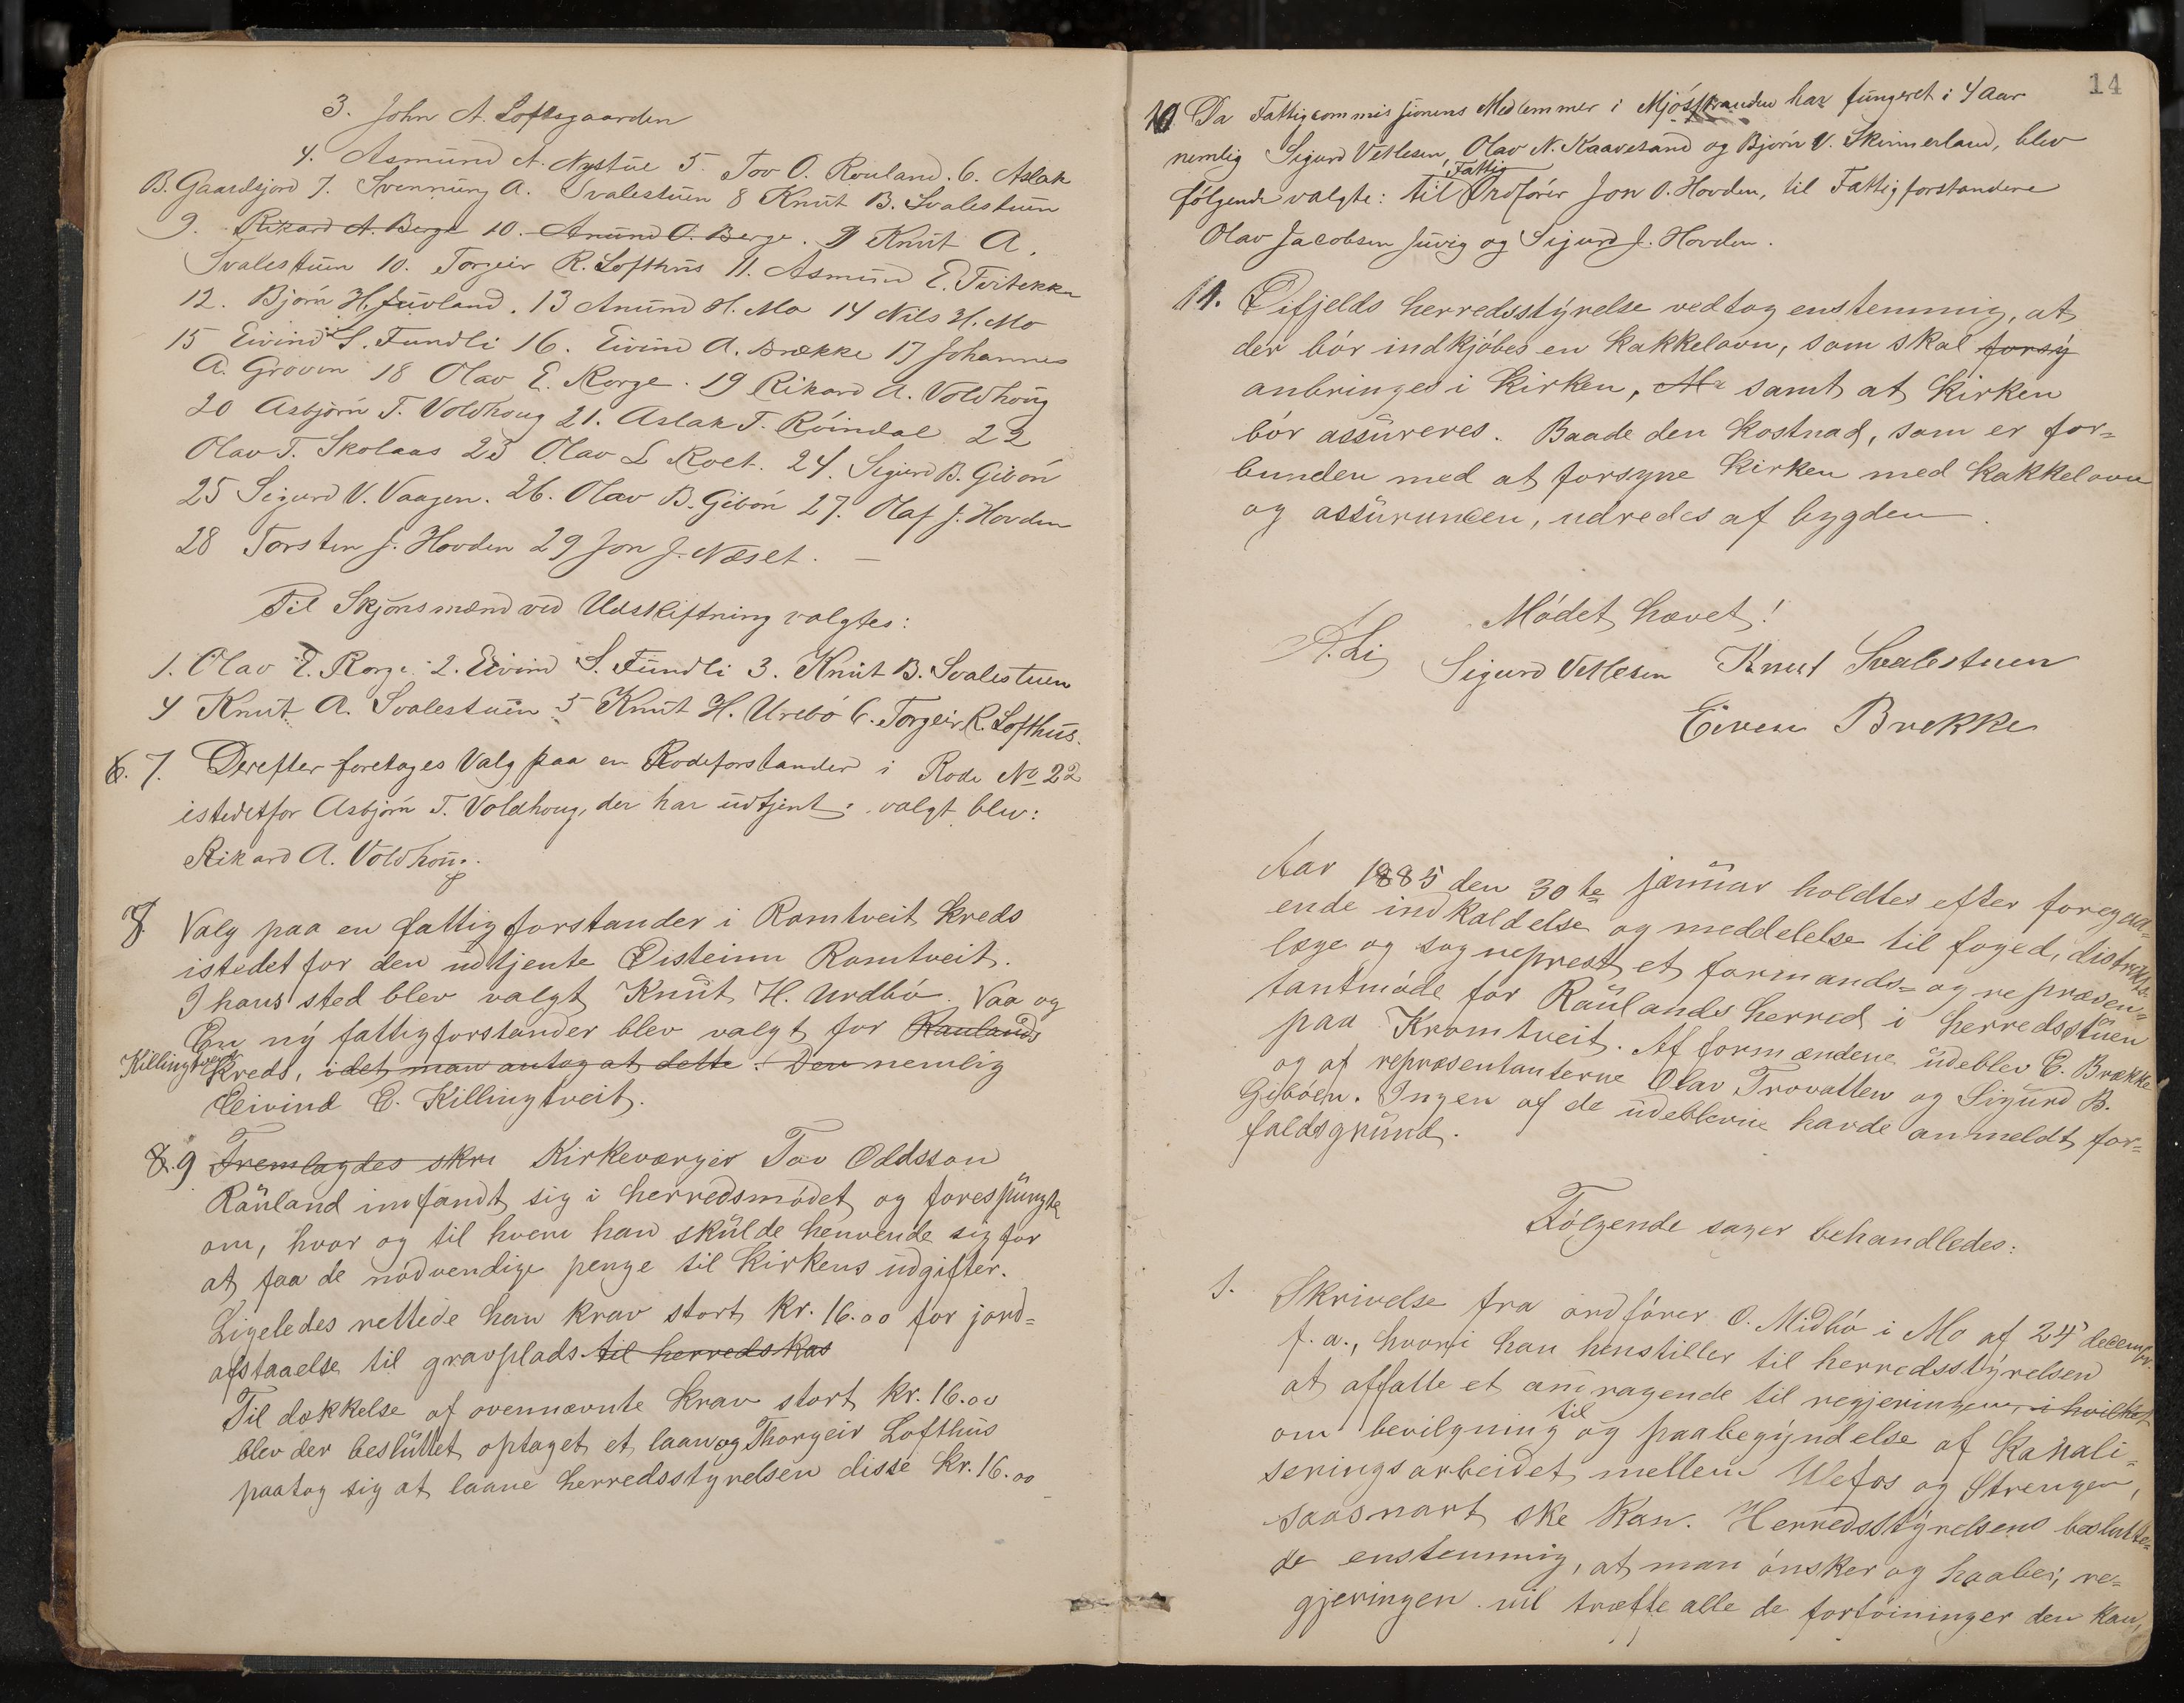 3. John A. Loftsgaarden
4. Asmund A. Nystue 5. Tov O. Rouland. 6. Aslak
B. Gaardsjord 7. Svennung A. Svalestuen 8 Knut B. Svalestuen
9. Rikard A. Berge 10. Anund O. Berge. 9 Knut A.
Svalestuen 10. Torgeir R. Lofthus 11. Asmund E. Tvitekka
12. Bjørn H. Juvland. 13 Anund H. Mo 14 Nils H. Mo
15 Eivind S. Fundli 16. Eivind A. Brække 17 Johannes
A. Groven 18 Olav E. Korge. 19 Rikard A. Voldhoug
20 Asbjørn T. Voldhoug 21. Aslak T. Röindal 22
Olav T. Skolaas 23 Olav L Roet. 24. Sigurd B. Gibøn
25 Sigurd V. Vaagen. 26. Olav B. Gibøn 27. Olaf J. Hovden
28 Torsten J. Hovden 29 Jon J. Næset. —
Til Skjønsmænd ved Udskiftning valgtes:
1. Olav E. Rorge 2. Eivind S. Fundli 3. Knut B. Svalestuen
4 Knut A. Svalestuen 5 Knut H. Urebö 6. Torgeir R. Lofthus.
6. 7. Derefter foretages Valg paa en Rodeforstander i Rode No 22
istedetfor Asbjørn T. Voldhoug, der har udtjent; valgt blev:
Rikard A. Voldhoug.
8 Valg paa en fattigforstander i Romtveit kreds
istedet for den udtjente Øisteinn Romtveit.
I hans sted blev valgt Knut H. Urdbø. Vaa og
En ny fattigforstander blev valgt for Raulands
Killingtveit kreds, idet man antog at dette. Den nemlig
Eivind E. Killingtveit.
8. 9 Fremlagdes skri Kirkeværger Tov Oddsson
Rauland indfandt sig i herredsmødet og forespurgte
om, hvor og til hvem han skulde henvende sig for
at faa de nødvendige penge til kirkens udgifter.
Ligeledes rettede han krav stort kr. 16.00 for jord=
afstaaelse til gravplads til herredskas
Til dækkelse af ovennævnte krav stort kr. 16.00
blev der besluttet optaget et laan og Thorgeir Lofthus
paatog sig at laane herredsstyrelsen disse kr. 16.00
14
10 Da Fattigcommissionens Medlemmer i Mjösstranden har fungeret i 4 Aar
nemlig Sigurd Vetlesen, Olav N. Kaavesand og Bjørn V. Skinnerland, blev
Fattig
følgende valgte: til Ordfører Jon O. Hovden, til Fattigforstandere
Olav Jacobsen Juvig og Sigurd J. Hovden.
11. Øifjelds herredsstyrelse vedtog enstemmig, at
der bör indkjøbes en kakkelovn, som skal forsy
anbringes i kirken, samt at kirken
bør assureres. Baade den kostnad, som er for=
bunden med at forsyne kirken med kakkelovn
og assurancen, udredes af bygden.
Mødet hævet!
A. Li Sigurd Vetlesen Knut Svalestuen
Eivin Brekke
Aar 1885 den 30te januar holdtes efter foregaa=
ende indkaldelse og meddelelse til foged, distrikts=
læge og sogneprest et formands= og repræsen=
tantmøde for Raulands herred i herredsstuen
paa Kromtveit. Af formændene udeblev E. Brække
og af repræsentanterne Olav Trovatten og Sigurd B.
Gibøen. Ingen af de udeblevne havde anmeldt for=
faldsgrund.
Følgende sager behandledes:
1. Skrivelse fra ordfører O. Midbø i Mo af 24 decembr.
f. a., hvori han henstiller til herredsstyrelsen
at affatte et andragende til regjeringen, i hvilket
til
om bevilgning og paabegyndelse af kanali=
seringsarbeidet mellem Ulefos og Strengen,
saasnart ske kan. Herredsstyrelsens beslutte=
de enstemmig, at man ønsker og haaber, re=
gjeringen vil træffe alle de fortøininger den kan,